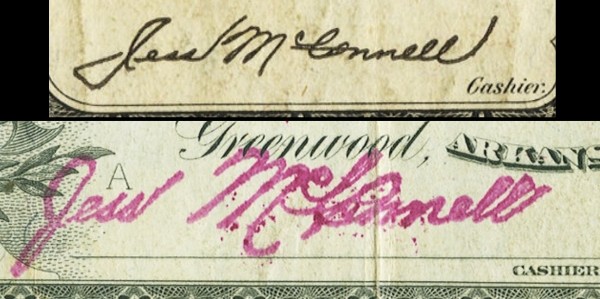 Jess McConnell
Cashier.
Greenwood, ARKANS
A
Jess McConnell
CASHIER